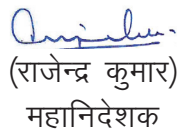 (राजेन्द्र कुमार)
महानिदेशक